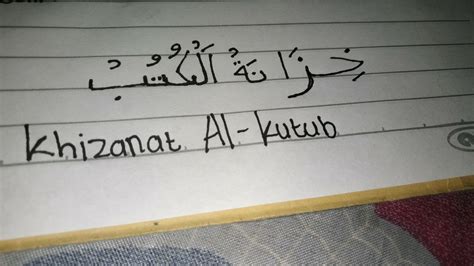 خِزَانَةُ الْكُتُبُ
Khizanat Al-kutub